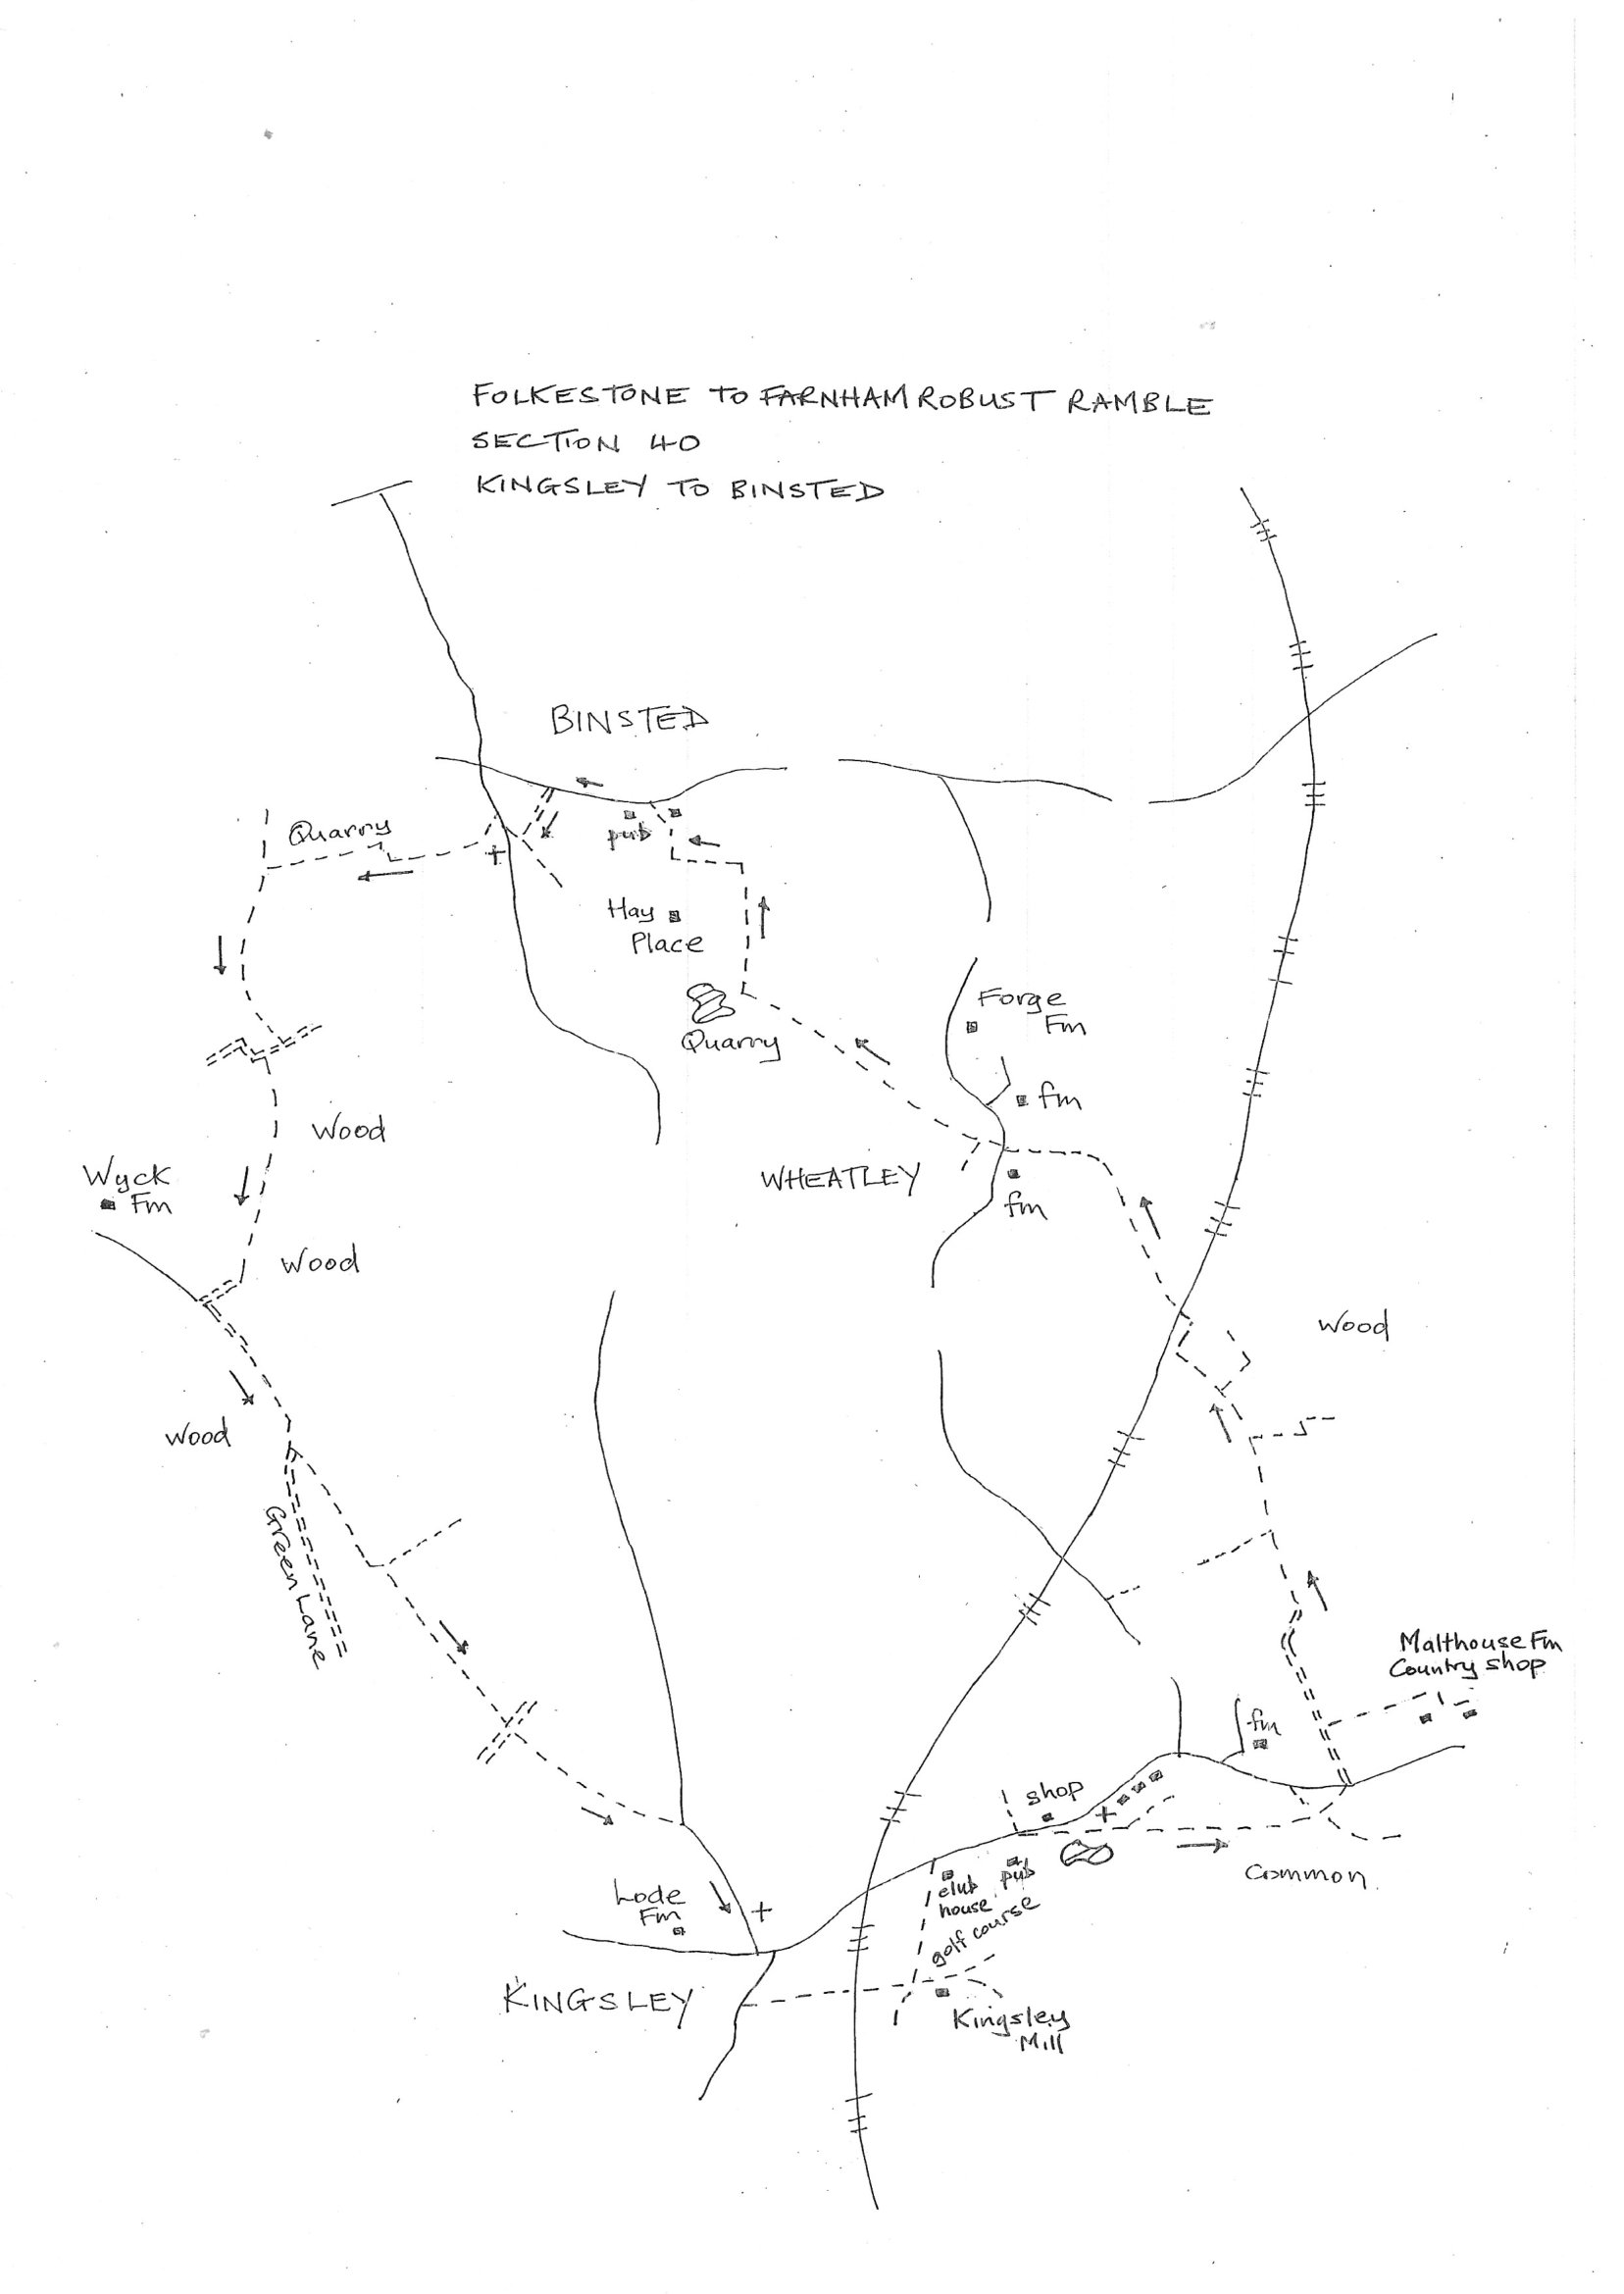 FOLKESTONE TO FARNHAM ROBUST RAMBLE
SECTION 40
KINGSLEY TO BINSTED
BINSTED
Quarry
pub
Hay
Place
Quarry
Forge
Fm
fm
WHEATLEY
fm
Wood
Wyck
Fm
Wood
Wood
Wood
Green Lane
Malthouse Fm
Country shop
fm
shop
Common.
pub
club
house
golf course
Lode
Fm
KINGSLEY
Kingsley
Mill